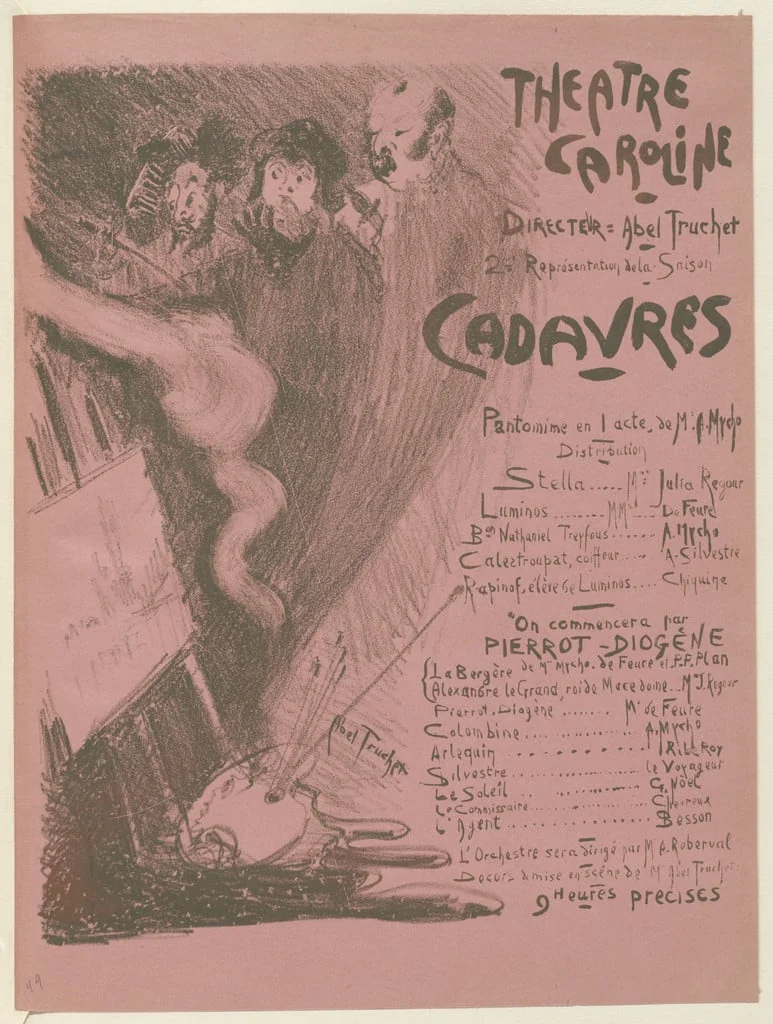 THEATRE
CAROLINE
DIRECTEUR = Abel Truchet
2e Représentation de la Saison
CADAVRES
Pantomime en 1 acte, de Mr A. Mycho
Distribution
Stella..... Mlle Julia Regour
Luminos........ MM. De Feure
Bon Nathaniel Treyfous...... A. Mycho
Calestroupat, coiffeur.... A. Silvestre
Rapinof, élève de Luminos.... Chiquine
On commencera par
PIERROT-DIOGÈNE
La Bergère de Mr Mycho. de Feure et P.P. Plan
Alexandre le Grand, roi de Macedoine.. Mlle J. Regour
Pierrot-Diogène........ Mr de Feure
Colombine.............. A. Mycho
Arlequin
Silvestre............... le Voyageur
Le Soleil............. G. Noël
Le Commissaire............... Chevreux
L'Agent............... Besson
L'Orchestre sera dirigé par M. A. Roberval
Decors & mise en scène de M. Abel Truchet
9 Heures precises
Abel Truchet
49